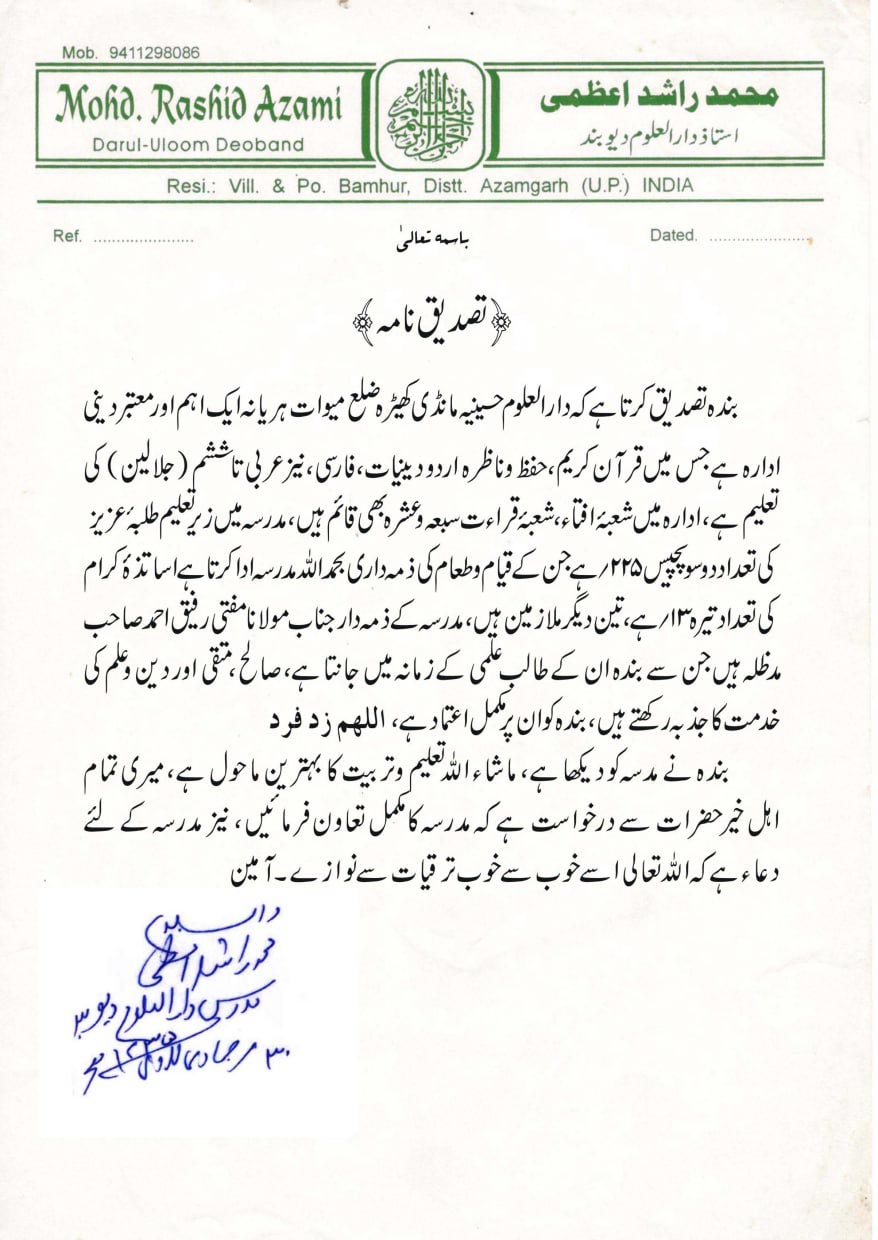 Mob. 9411298086
Mohd. Rashid Azami
محمد راشد اعظمی
Darul-Uloom Deoband
استاذ دارالعلوم دیوبند
Resi.: Vill. & Po. Bamhur, Distt. Azamgarh (U.P.) INDIA
Ref. ......................
باسمہ تعالیٰ
Dated. ......................
﴿تصدیق نامہ﴾
بندہ تصدیق کرتا ہے کہ دارالعلوم حسینیہ مانڈی کھیڑہ ضلع میوات ہریانہ ایک اہم اور معتبر دینی
ادارہ ہے جس میں قرآن کریم، حفظ وناظرہ اردو دینیات، فارسی، نیز عربی تا ششم (جلالین) کی
تعلیم ہے، ادارہ میں شعبۂ افتاء، شعبۂ قراءت سبعہ وعشرہ بھی قائم ہیں، مدرسہ میں زیر تعلیم طلبۂ عزیز
کی تعداد دو سو پچیس ۲۲۵؍ ہے جن کے قیام وطعام کی ذمہ داری بحمد اللہ مدرسہ ادا کرتا ہے اساتذۂ کرام
کی تعداد تیرہ ۱۳؍ ہے، تین دیگر ملازمین ہیں، مدرسہ کے ذمہ دار جناب مولانا مفتی رفیق احمد صاحب
مدظلہ ہیں جن سے بندہ ان کے طالب علمی کے زمانہ میں جانتا ہے، صالح، متقی اور دین وعلم کی
خدمت کا جذبہ رکھتے ہیں، بندہ کو ان پر مکمل اعتماد ہے، اللهم زد فرد
بندہ نے مدسہ کو دیکھا ہے، ماشاء اللہ تعلیم وتربیت کا بہترین ماحول ہے، میری تمام
اہل خیر حضرات سے درخواست ہے کہ مدرسہ کا مکمل تعاون فرمائیں، نیز مدرسہ کے لئے
دعاء ہے کہ اللہ تعالی اسے خوب سے خوب ترقیات سے نوازے۔ آمین
والسلام
محمد راشد اعظمی
مدرس دارالعلوم دیوبند
۳۰ جمادی الاول ۱۴۳۵ھ